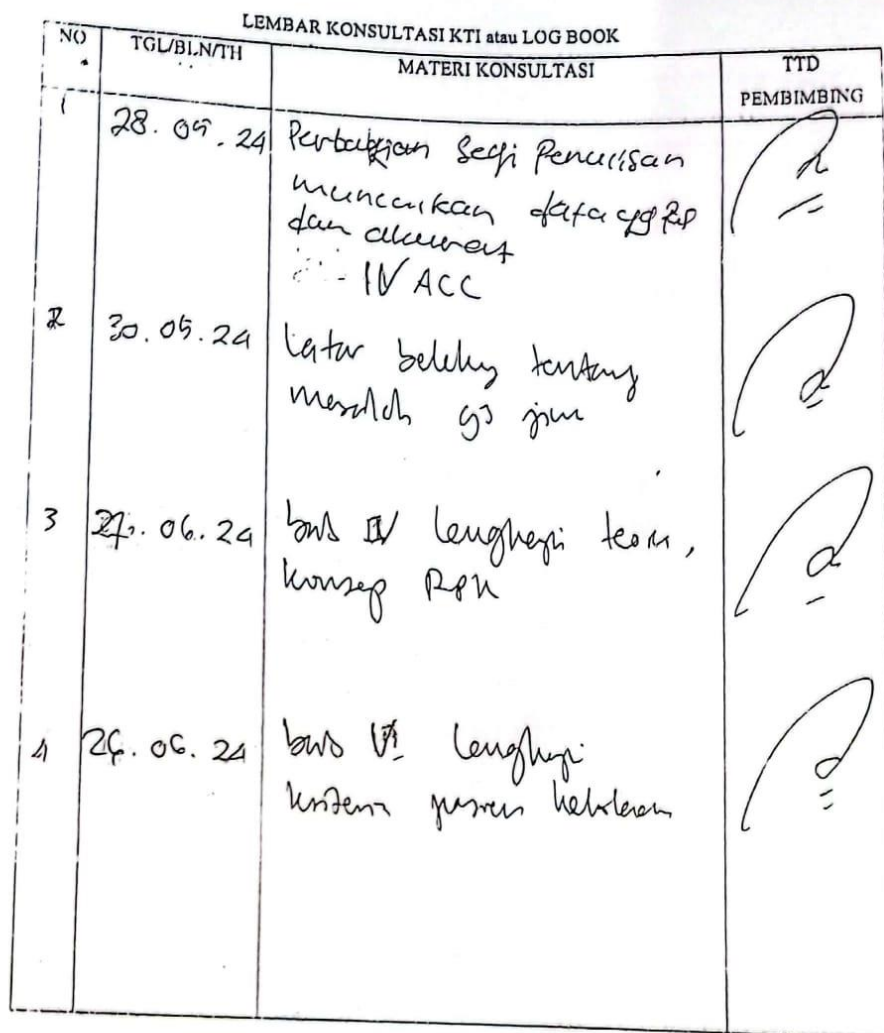 LEMBAR KONSULTASI KTI atau LOG BOOK
NO TGL/BLN/TH MATERI KONSULTASI TTD PEMBIMBING
1 28.05.24 Perbaikian Segi Penulisan
munculkan data yg
dan akurat
IV ACC
2 30.05.24 Latar belakang tentang
masalah jiwa
3 27.06.24 bab IV lengkapi teori,
konsep
4 26.06.24 bab lengkapi
kriteria pasien